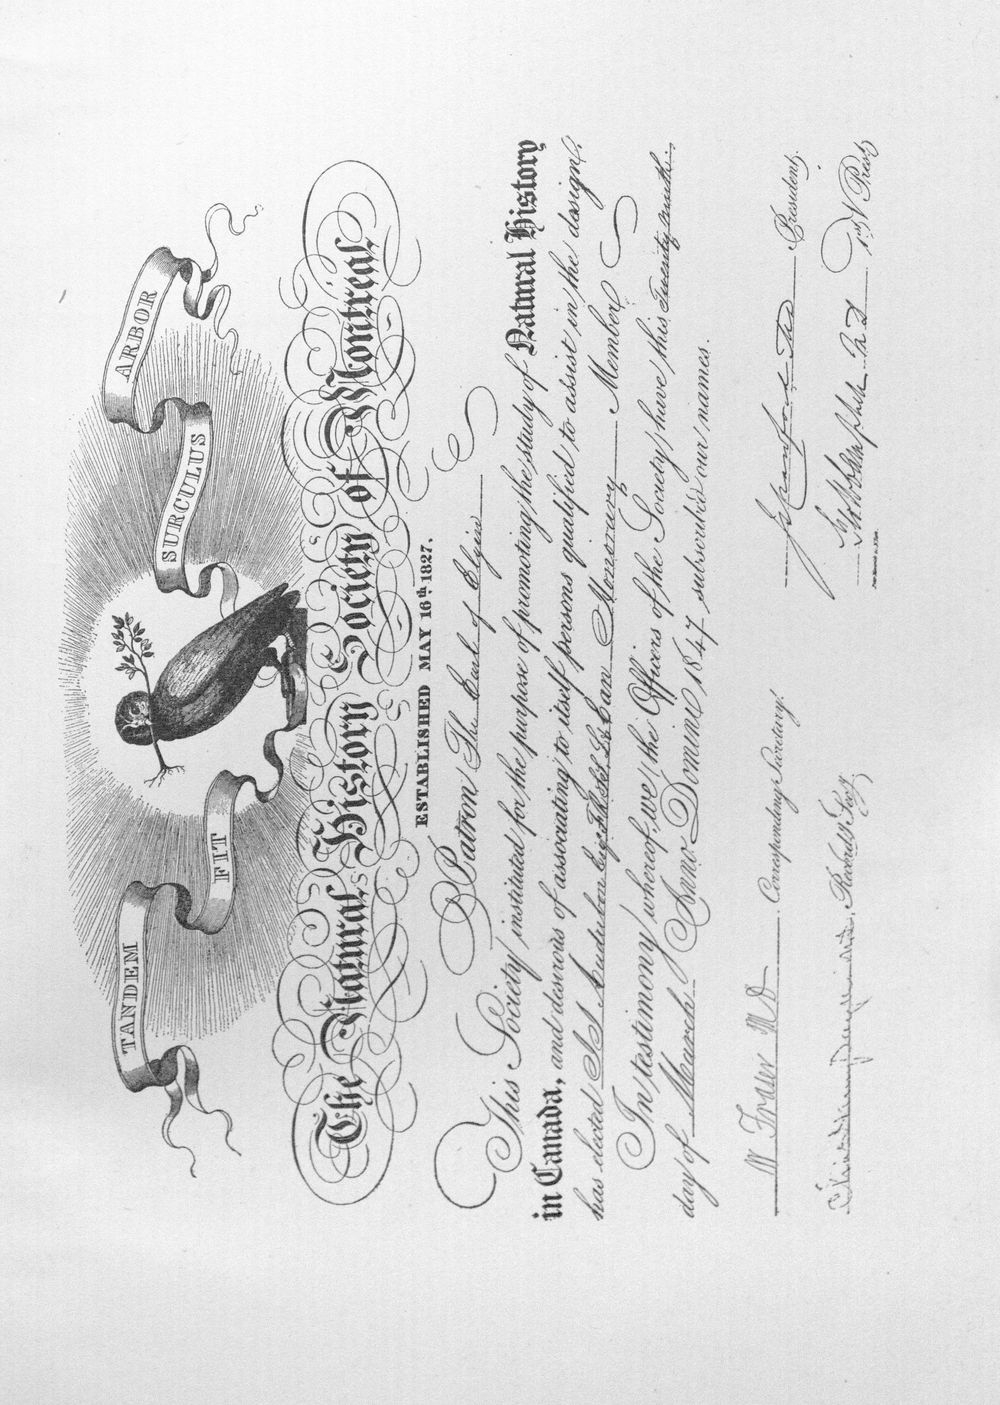 TANDEM FIT SURCULUS ARBOR
The Natural History Society of Montreal
ESTABLISHED MAY 16th 1827.
Patron The Earl of Elgin
This Society instituted for the purpose of promoting the study of Natural History
in Canada, and desirous of associating to itself persons qualified to assist in the design,
has elected J J Audubon Esq Honorary Member
In testimony whereof, we the Officers of the Society have this Twenty ninth
day of March Anno Domini 1847 subscribed our names.
President.
W Fraser M.D Corresponding Secretary.
1st V Prest
Record'g Secy